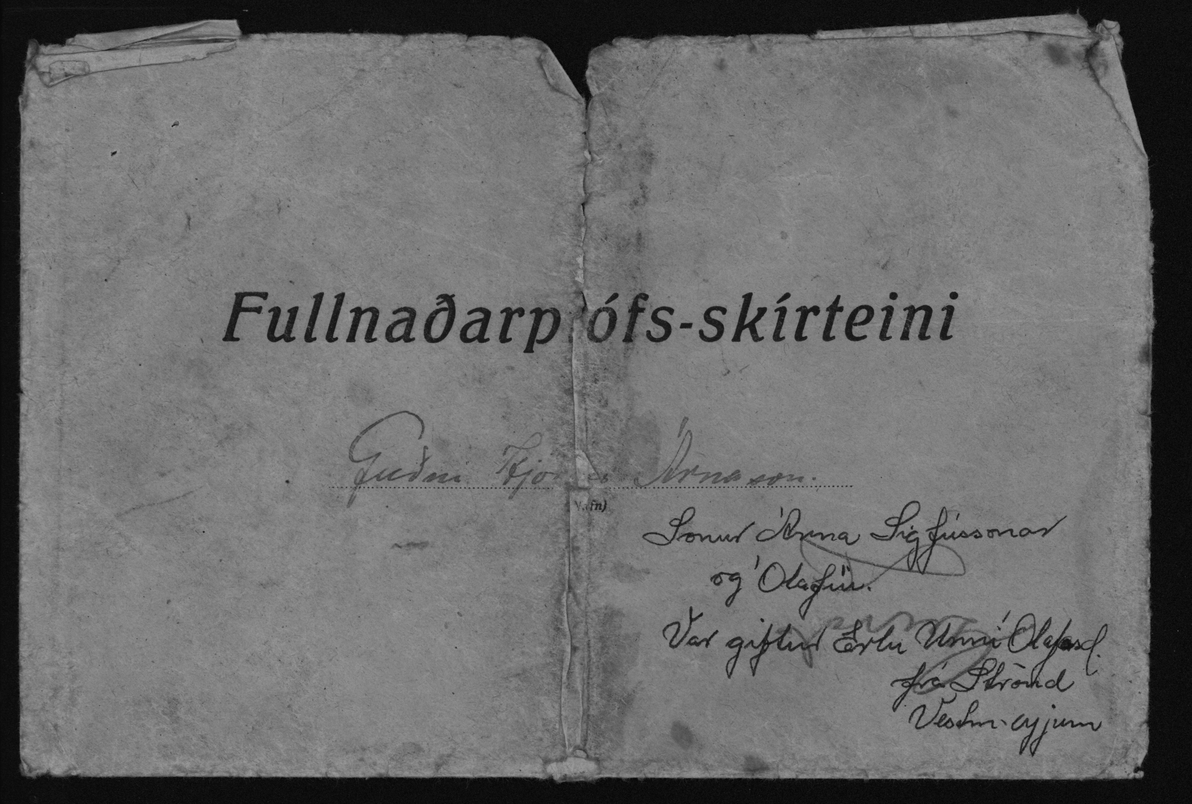 Fullnaðarp ófs-skírteini
Guðni Árnason.
Sonur Árna Sigfússonar
og Ólafíu.
Var giftur Erlu Unni Ólafsd.
frá Strönd
Vestm-eyjum